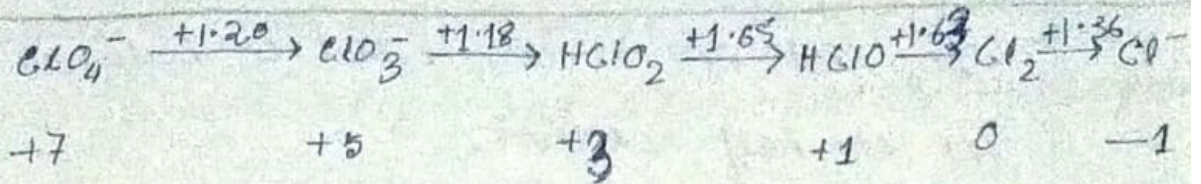 ClO₄⁻ +1.20 → ClO₃⁻ +1.18 → HClO₂ +1.65 → HClO +1.63 → Cl₂ +1.36 → Cl⁻
+7 +5 +3 +1 0 -1